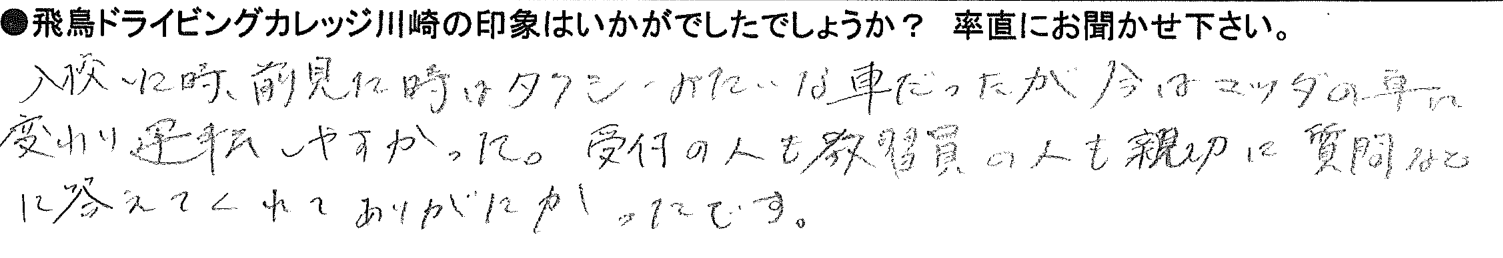 ●飛鳥ドライビングカレッジ川崎の印象はいかがでしたでしょうか？ 率直にお聞かせ下さい。
入校した時、前見た時はタクシーみたいな車だったが今はマツダの車に
変わり運転しやすかった。受付の人も教習員の人も親切に質問など
に答えてくれてありがたかったです。